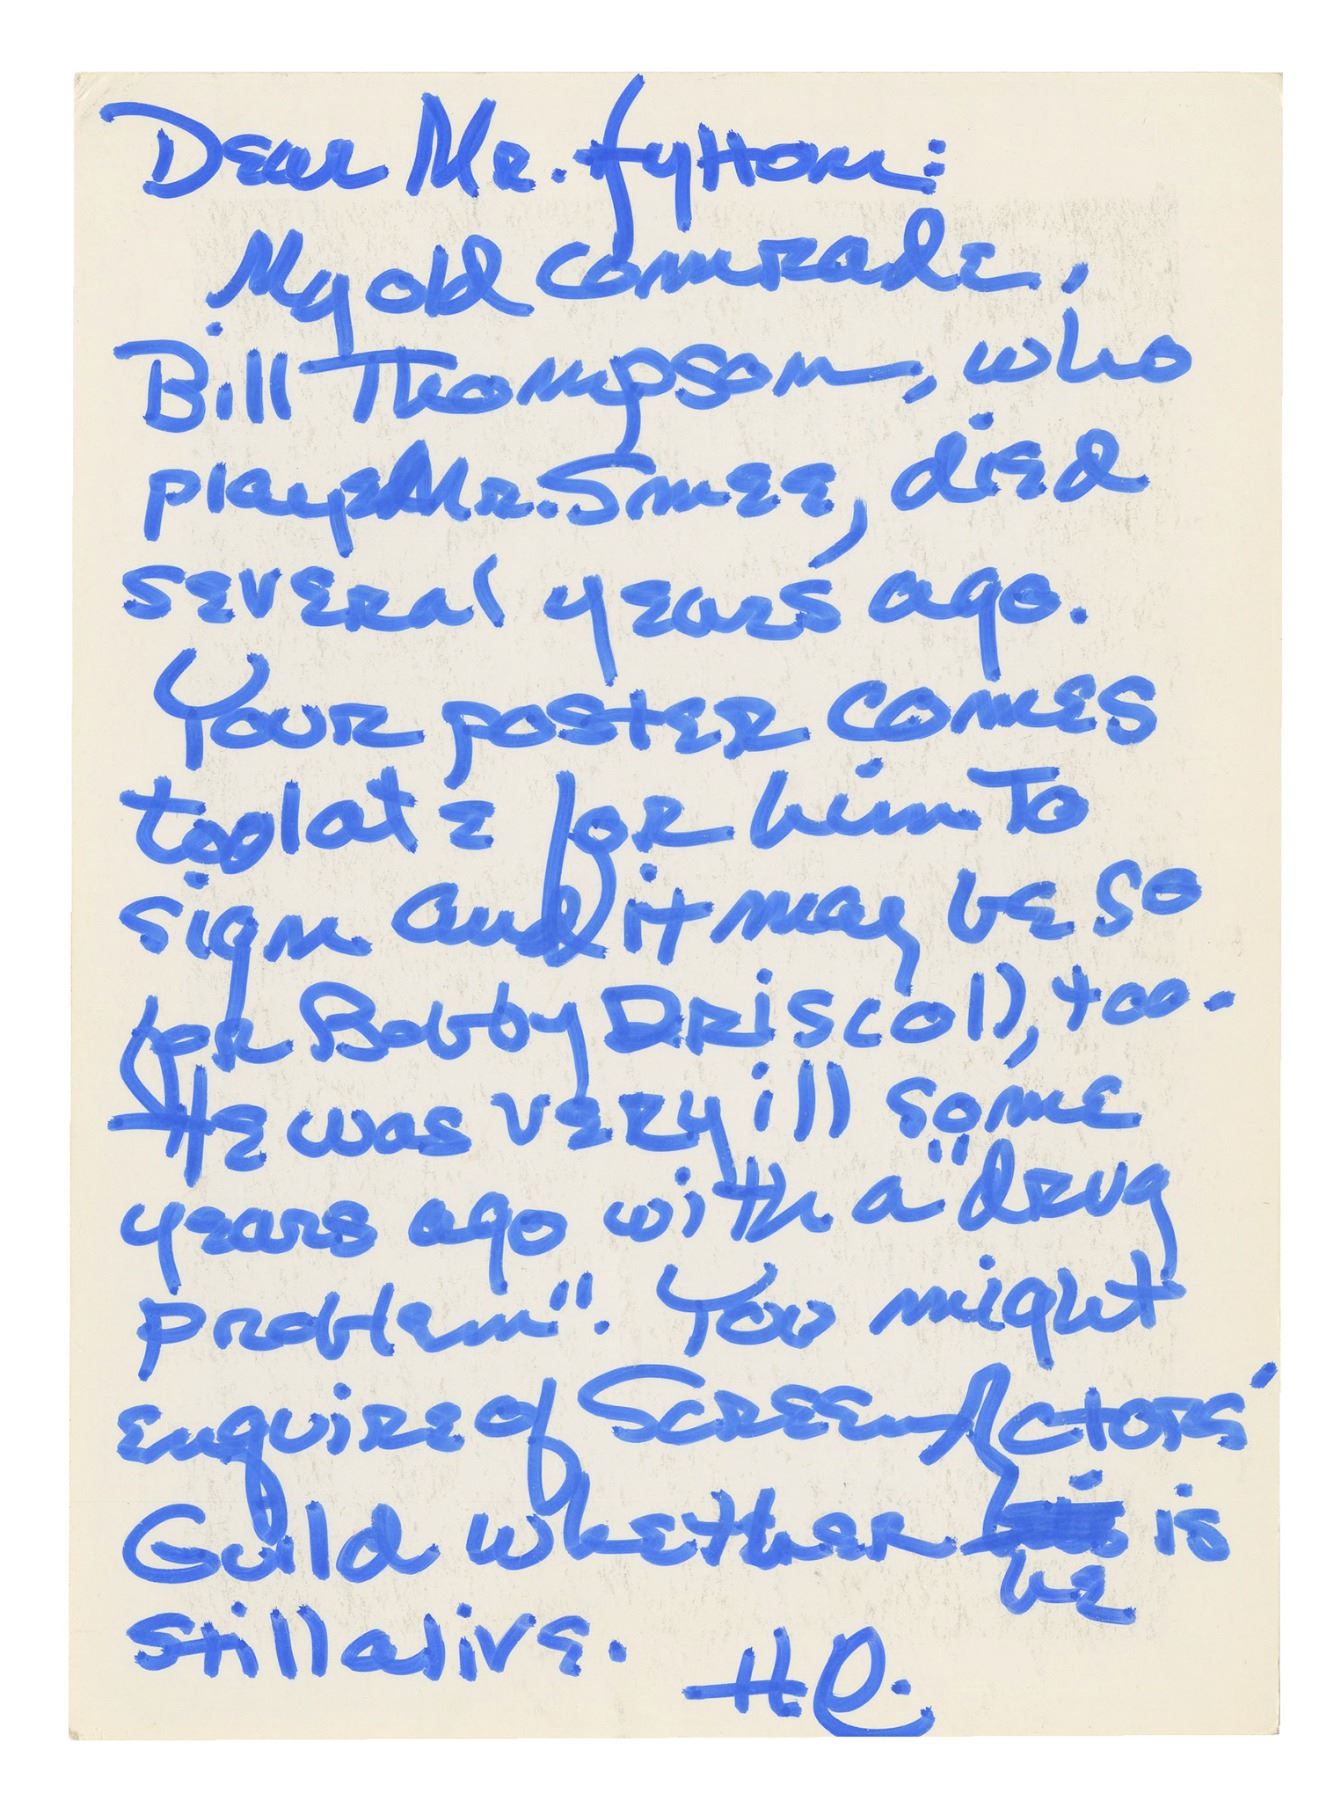 Dear Mr. Fyttom:
My old comrade,
Bill Thompson, who
playe Mr. Smee, died
several years ago.
Your poster comes
too late for him To
sign and it may be so
for Bobby Driscoll, too.
He was very ill some
years ago with a "drug
problem". You might
enquire of Screen Actors'
Guild whether is
he
still alive.